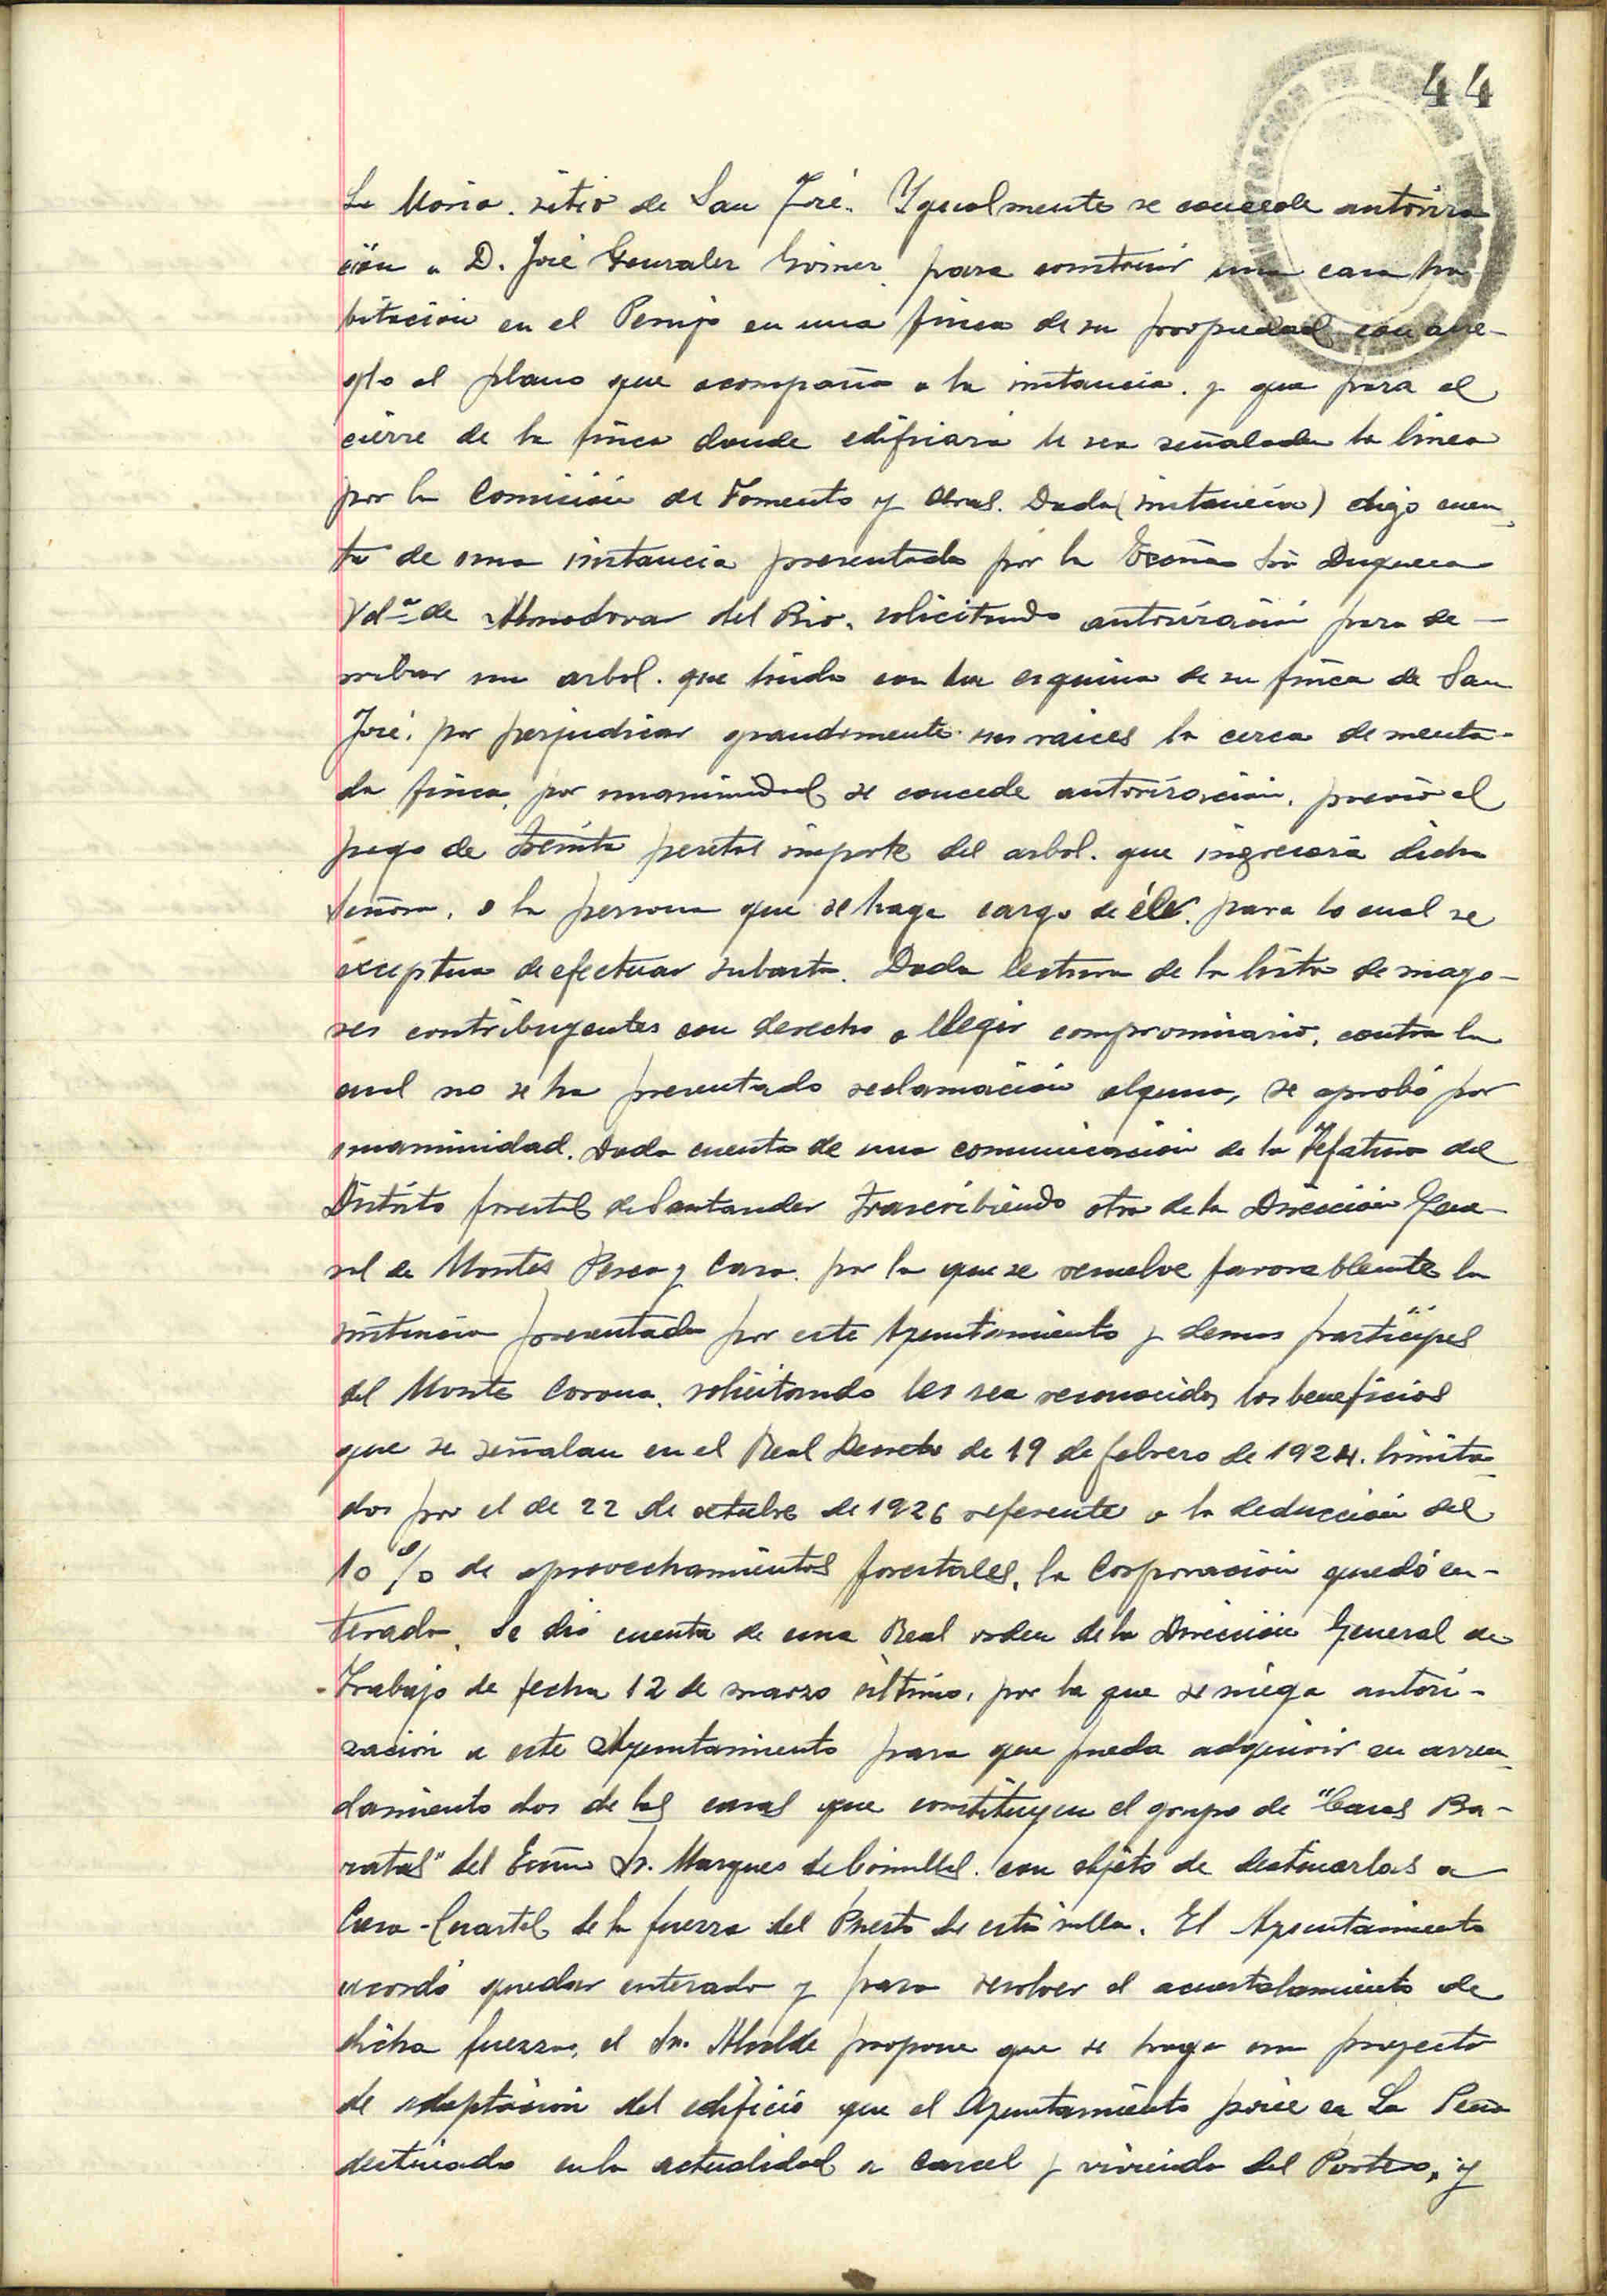 44
La Moria. sitio de San José. Ygualmente se concede autoriza
ción a D. José Gonzalez Gómez, para construir una casa ha
bitación en el Perujo en una finca de su propiedad con arre-
glo al plano que acompaña a la instancia. y que para el
cierre de la finca donde edificará le sea señalada la linea
por la Comisión de Fomento y Obras. Dada (instancia) digo cuen
ta de una instancia presentada por la Excma Sra Duquesa
Vdª de Almodovar del Rio. solicitando autorización para de-
rribar un arbol. que linda con la esquina de su finca de San
José. por perjudicar grandemente sus raices la cerca de menta-
da finca, por unanimidad se concede autorización. previo el
pago de treinta pesetas importe del arbol. que ingresará dicha
señora. o la persona que se haga cargo de él. para lo cual se
exceptua de efectuar subasta. Dada lectura de la lista de mayo-
res contribuyentes con derecho a elegir compromisario, contra la
cual no se ha presentado reclamación alguna, se aprobó por
unanimidad. Dada cuenta de una comunicación de la Jefatura del
Distrito forestal de Santander trascribiendo otra de la Dirección Gene-
ral de Montes Pesca y Caza. por la que se resuelve favorablemente la
instancia presentada por este Ayuntamiento y demas participes
del Monte Corona. solicitando les sea reconocidos los beneficios
que se señalan en el Real Decreto de 19 de febrero de 1924. limita
dos por el de 22 de octubre de 1926 referente a la deducción del
10 % de aprovechamientos forestales. la Corporación quedó en-
terada. Se dió cuenta de una Real orden de la Dirección General de
Trabajo de fecha 12 de marzo último, por la que se niega autori-
zación a este Ayuntamiento para que pueda adquirir en arren
damiento dos de las casas que constituyen el grupo de "Casas Ba-
ratas" del Excmo Sr. Marques de Comillas. con objeto de destinarlas a
Casa-Cuartel de la fuerza del Puesto de esta villa. El Ayuntamiento
acordó quedar enterado y para resolver el acuartelamiento de
dicha fuerza, el Sr. Alcalde propone que se haga un proyecto
de adaptación del edificio que el Ayuntamiento posée en La Peña
destinado en la actualidad a Carcel y vivienda del Portero, y